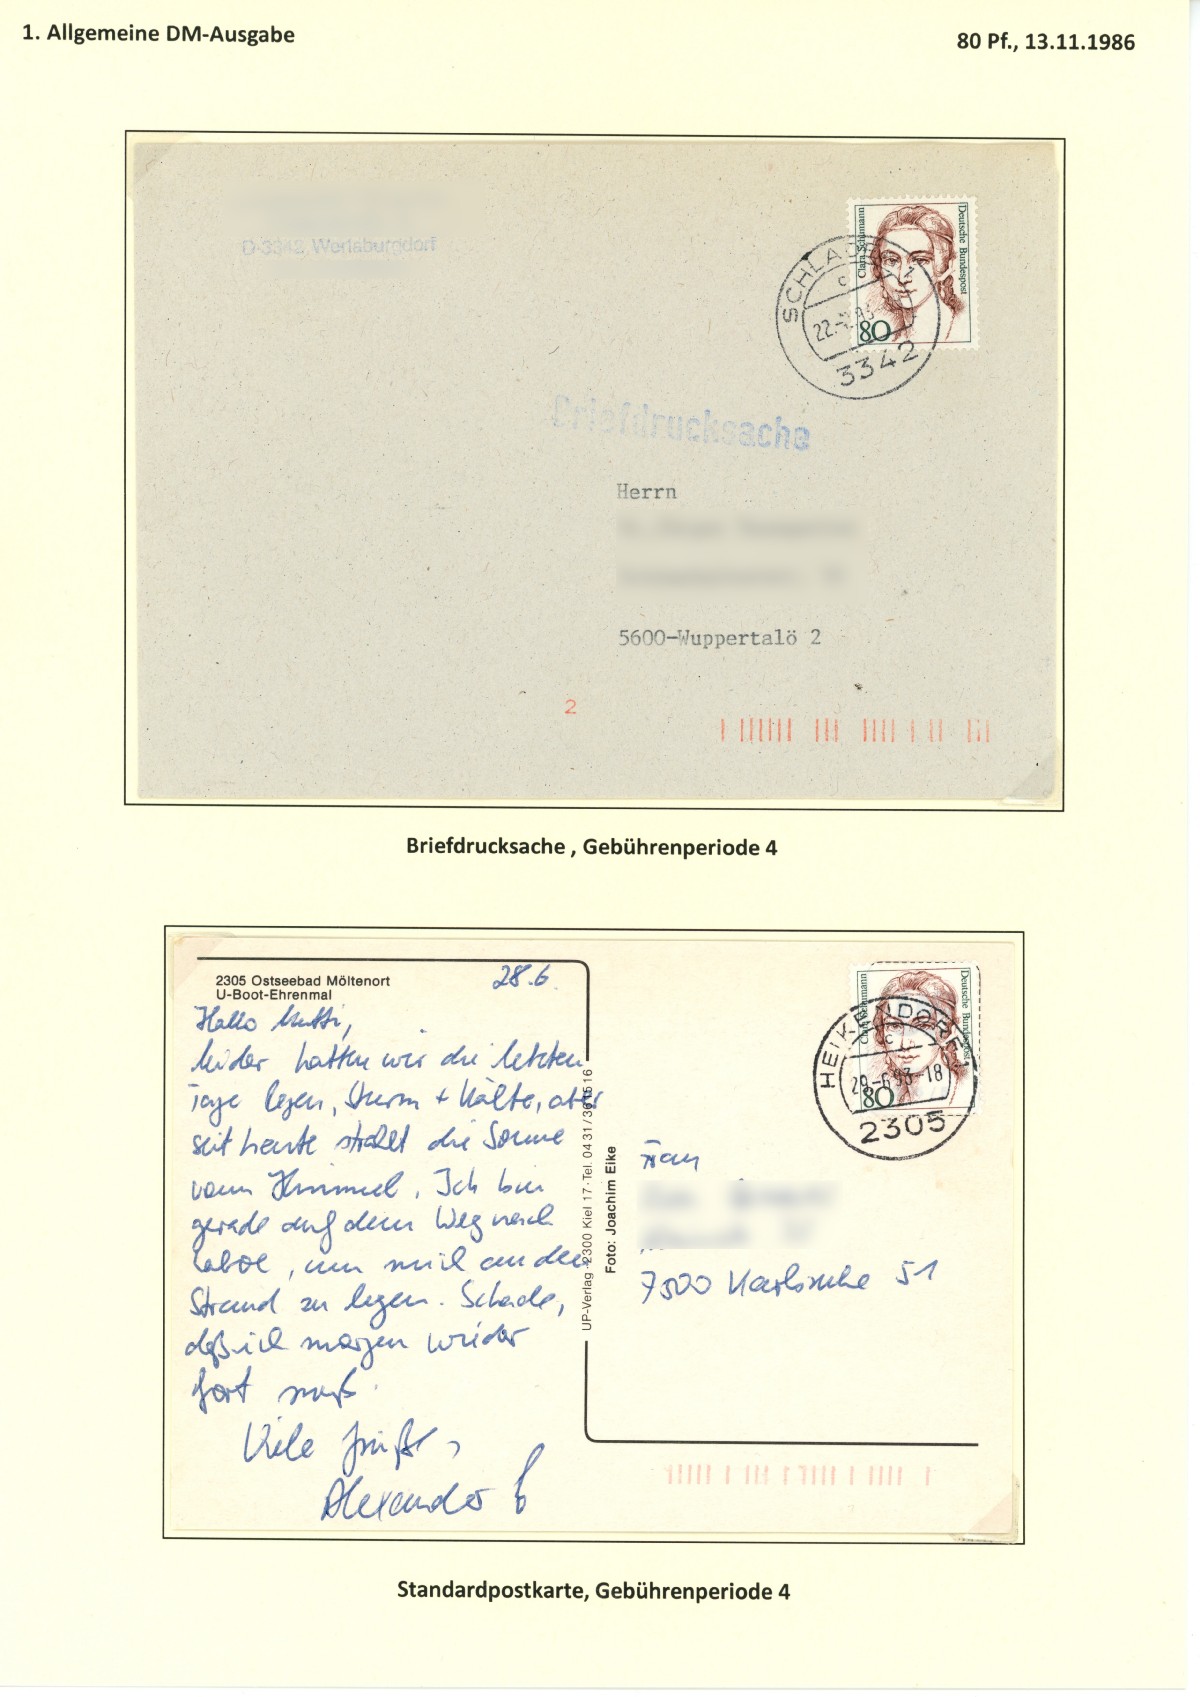 1. Allgemeine DM-Ausgabe
80 Pf., 13.11.1986
D-3342 Werlaburgdorf
Clara Schumann
Deutsche Bundespost
80
SCHLADEN
c
22.
93
3342
Briefdrucksache
Herrn
5600-Wuppertalö 2
2
Briefdrucksache , Gebührenperiode 4
2305 Ostseebad Möltenort
U-Boot-Ehrenmal
28.6
Hallo Mutti,
leider hatten wir die letzten
Tage Regen, Sturm + Kälte, aber
seit heute strahlt die Sonne
vom Himmel. Ich bin
gerade auf dem Weg nach
Laboe, um mich an den
Strand zu legen. Schade,
daß ich morgen wieder
fort muß.
Viele Grüße,
Alexander
UP-Verlag · 2300 Kiel 17 · Tel. 0431/361516
Foto: Joachim Eike
Clara Schumann
Deutsche Bundespost
80
HEIKENDORF 1
c
29.-6.93-18
2305
Frau
7500 Karlsruhe 51
Standardpostkarte, Gebührenperiode 4